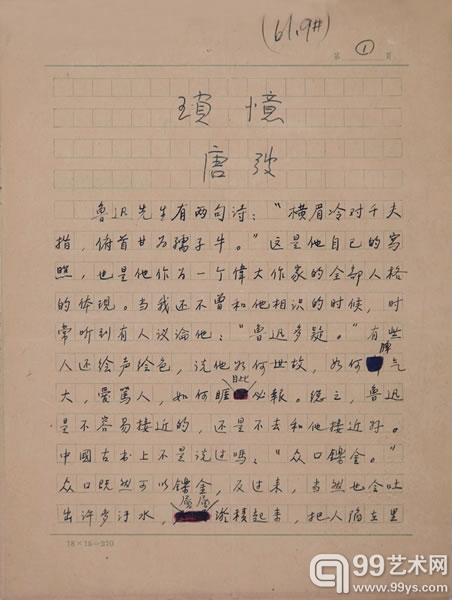 (61.9#)
第 1 頁
瑣憶
唐弢
魯迅先生有两句诗:"橫眉冷对千夫
指,俯首甘为孺子牛。"这是他自己的寫
照,也是他作为一个偉大作家的全部人格
的体现。当我还不曾和他相识的时候,时
常听到有人议論他:"鲁迅多疑。"有些
人还绘声绘色,说他如何世故,如何脾气
大,愛罵人,如何睚眦必報。總之,鲁迅
是不容易接近的,还是不去和他接近好。
中國古书上不是说过吗:"众口鑠金。"
众口既然可以鑠金,反过来,当然也会吐
出许多汙水,層層淤積起来,把人陷在里
18×15=270
99艺术网
www.99ys.com